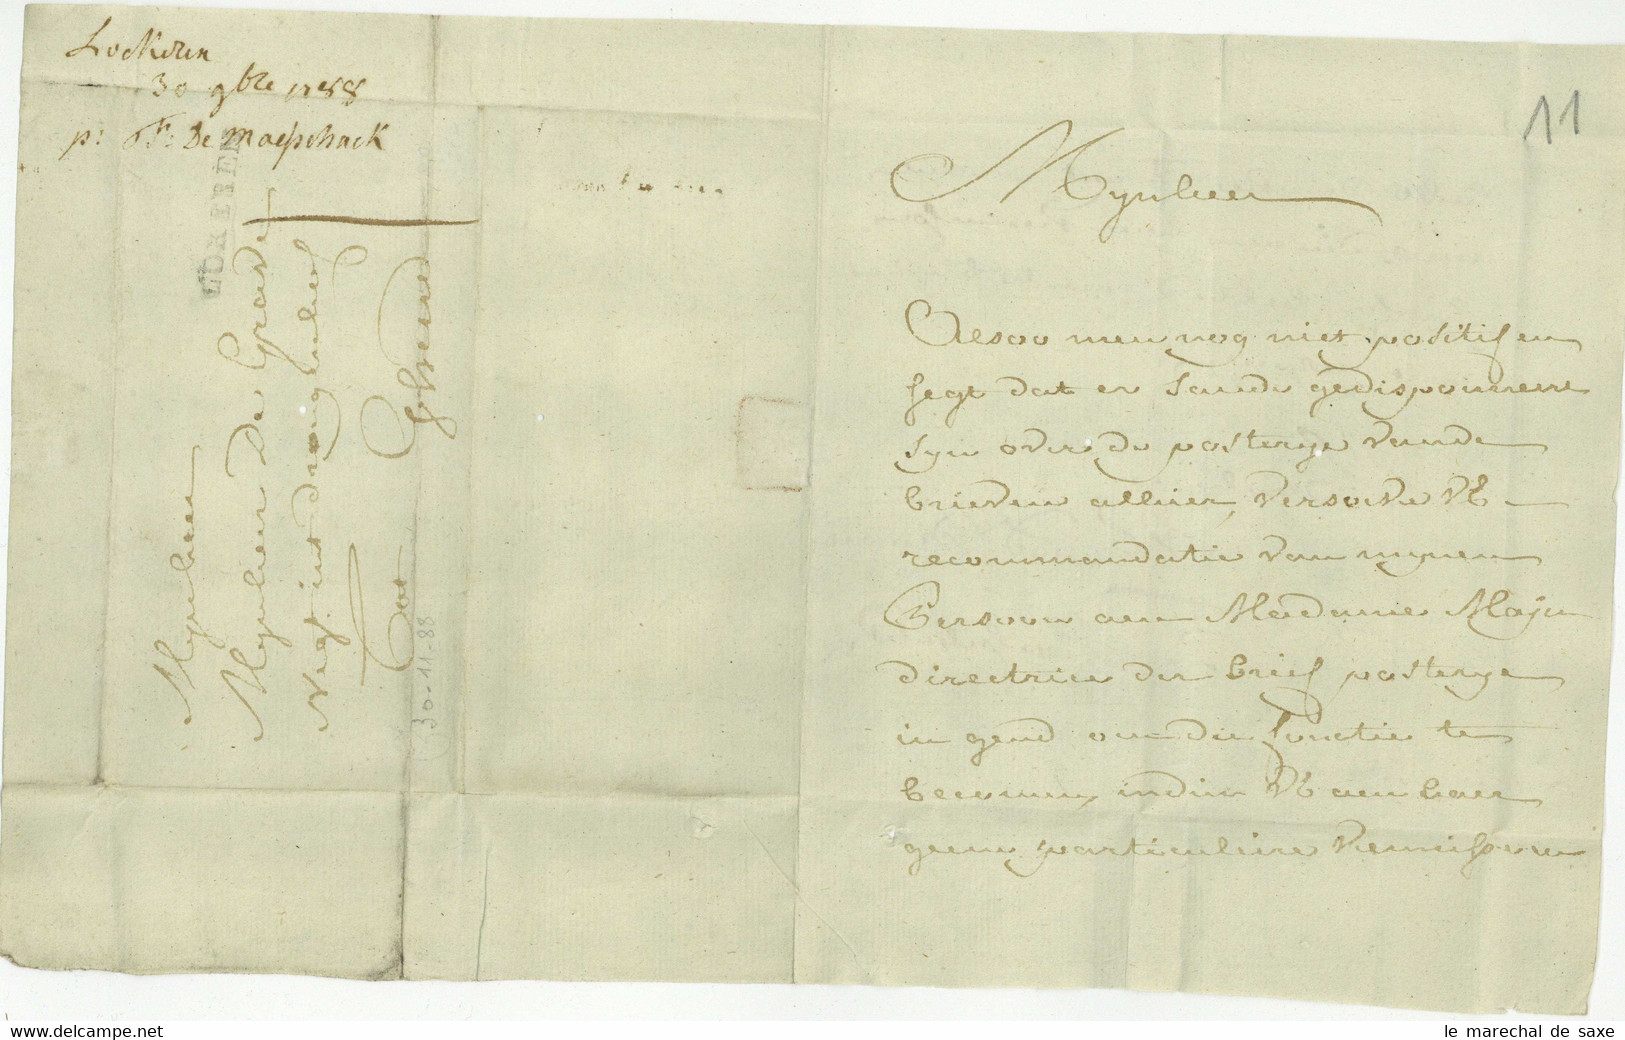 Lockeren
30 9bre 1788
p: F: De Maesschack
LOKEREN
Mynheer
Mynheer De Grave
Negt int
Tot Ghend
30-11-88
11
Mynheer
Alsoo men nog niet positif en
segt dat er saude gedisponeert
syn over de posterye vande
brieven alhier, versoeke UE
recommandatie van mynen
Persoon aen Madame Mayu
directrice der brief posterye
in gend om die functie te
becomen, indien UE aen haer
geene particuliere kennisse en
le marechal de saxe